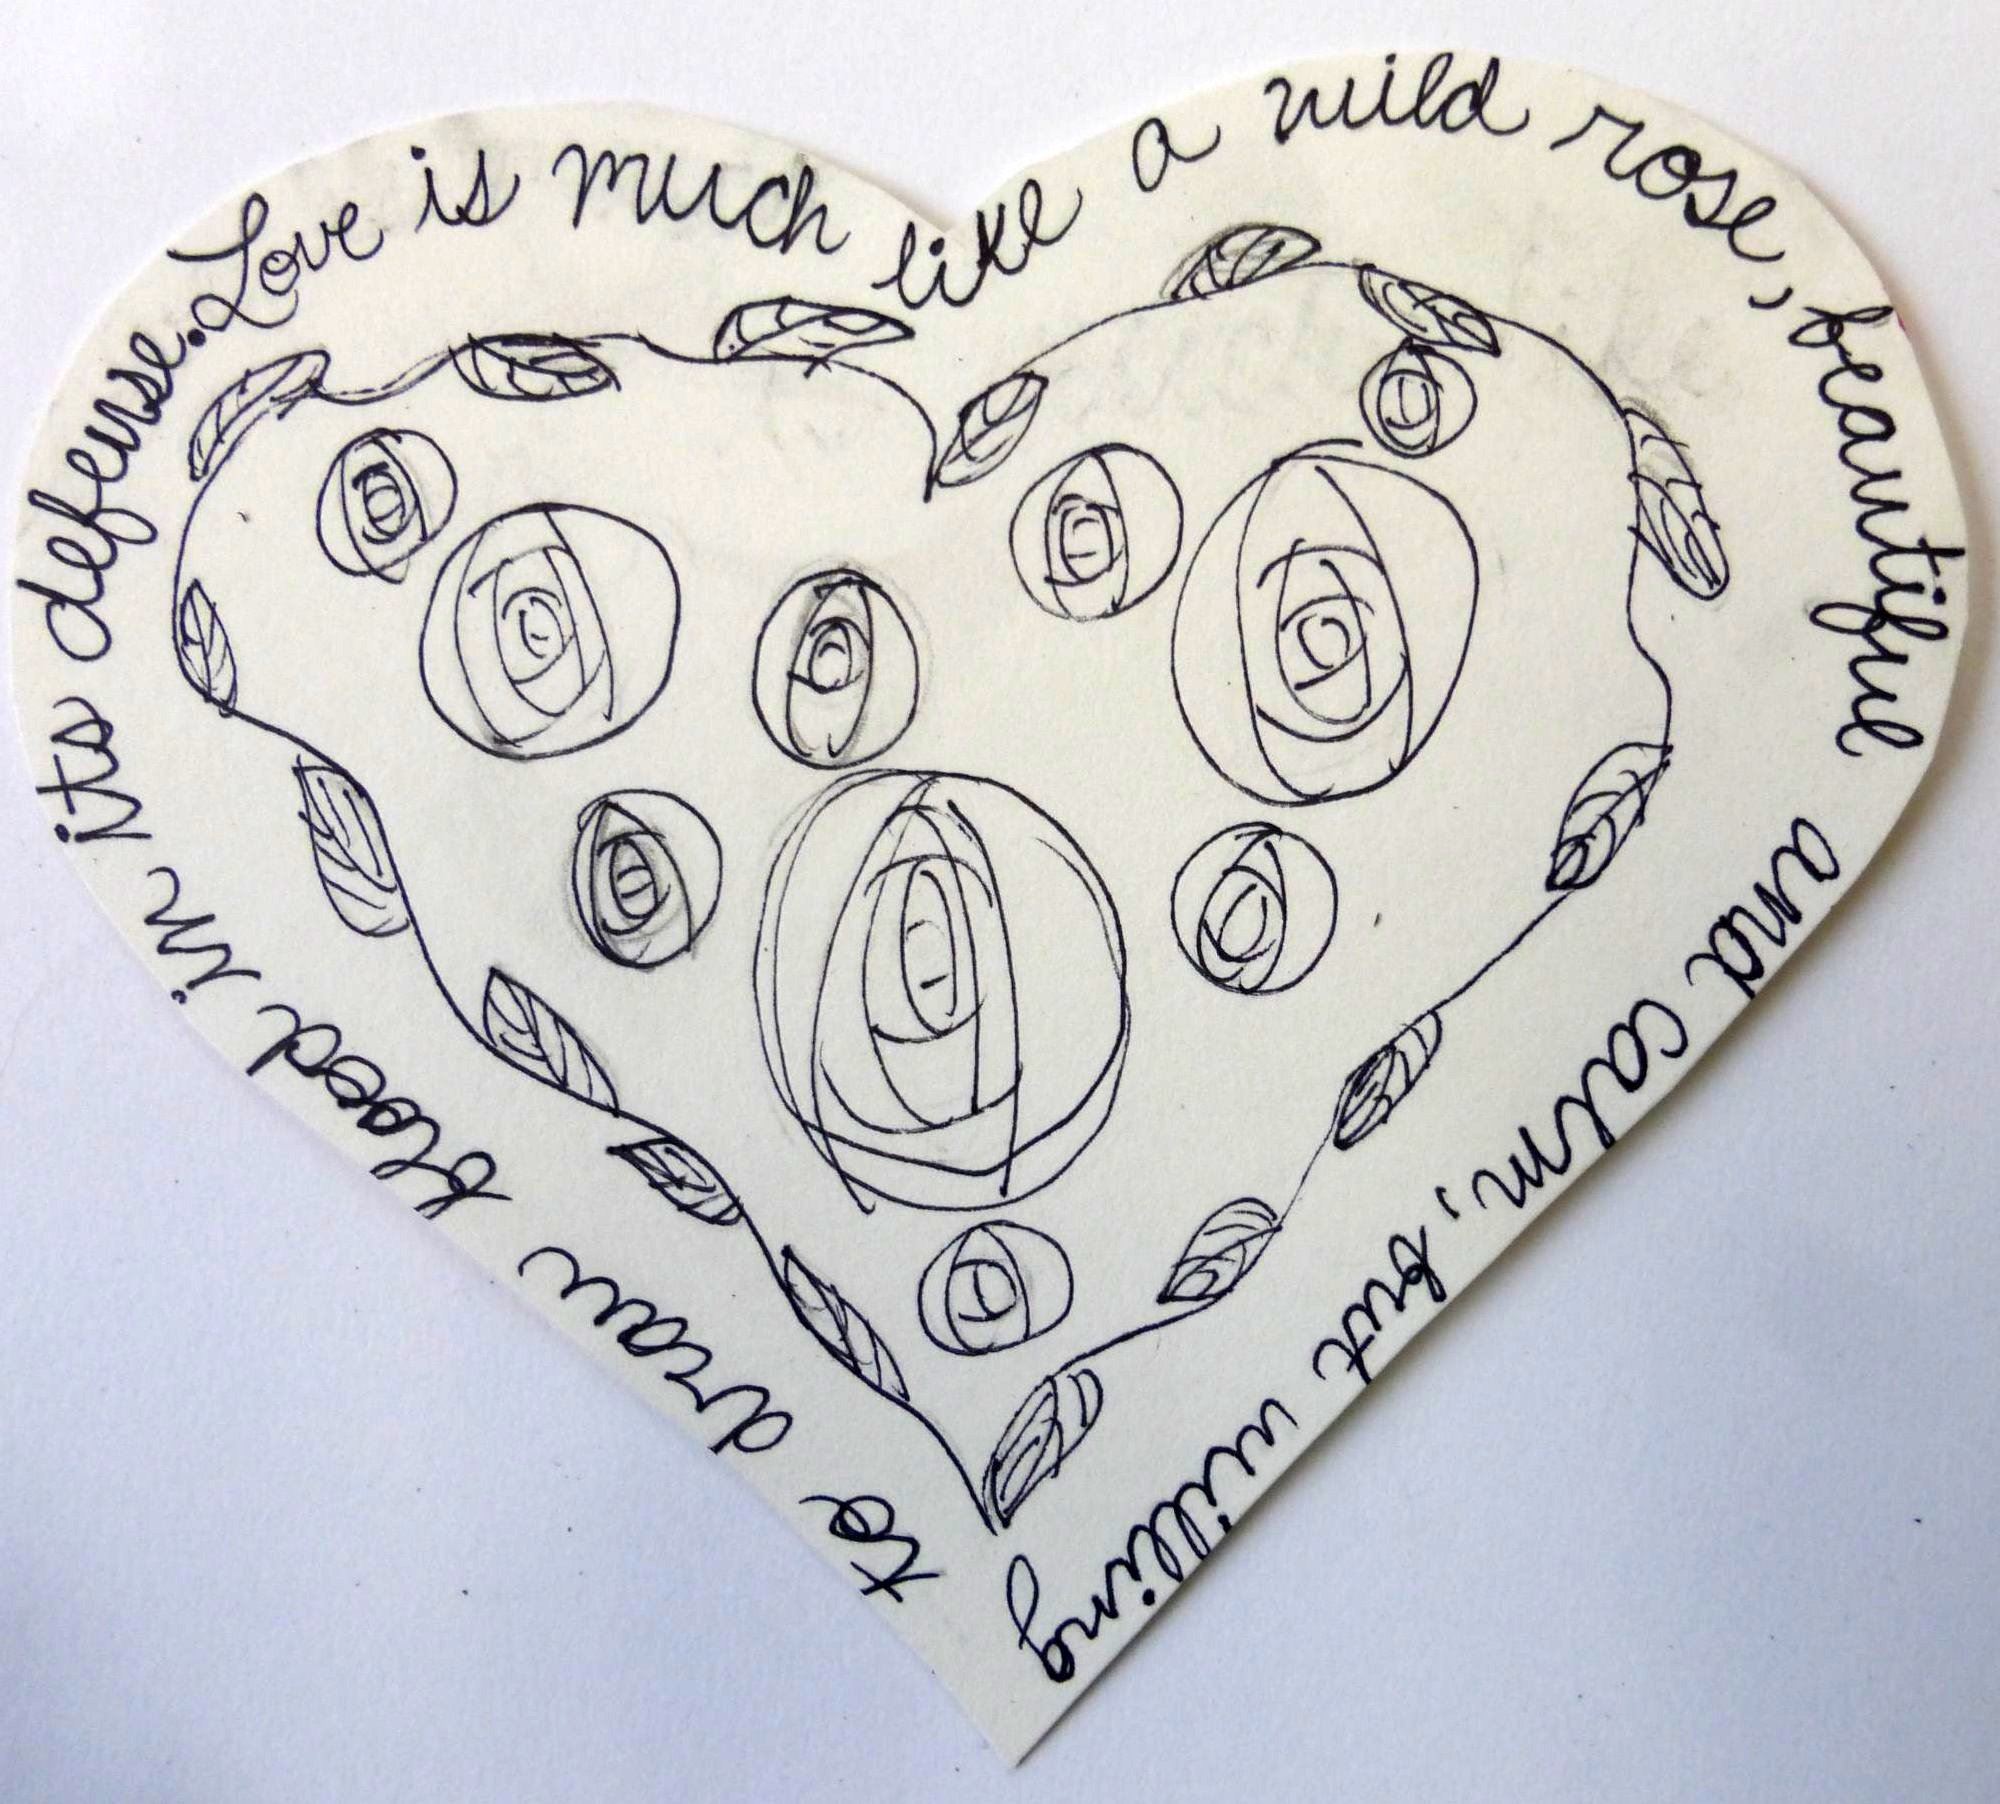 Love is much like a wild rose, beautiful and calm, but willing to draw blood in its defense.